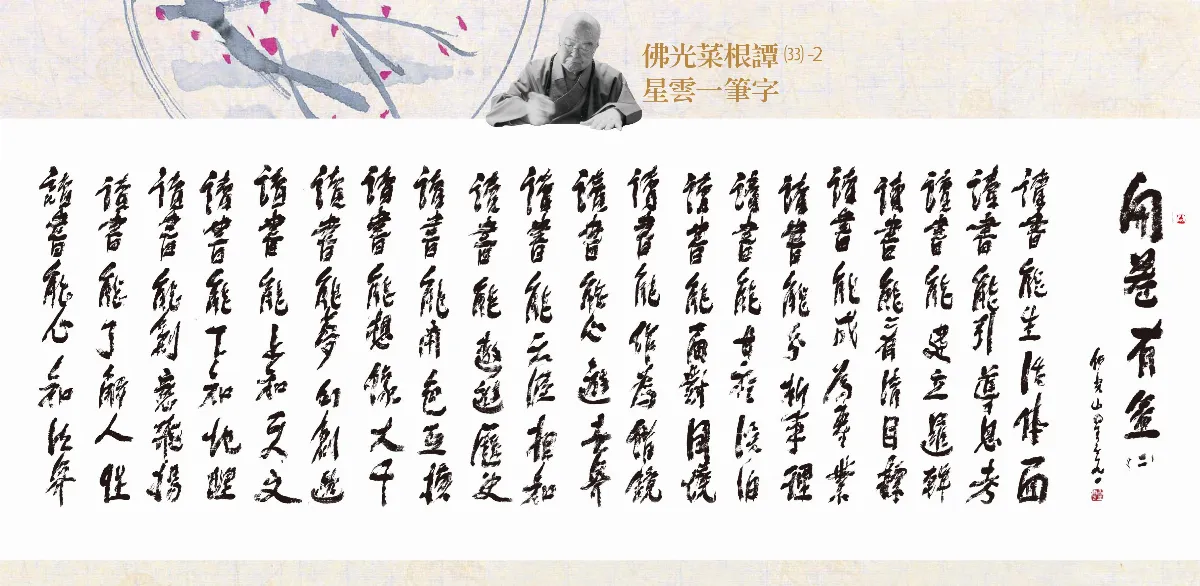 佛光菜根譚(33)-2
星雲一筆字
開卷有益(二)
佛光山星雲
讀書能生活体面
讀書能引導思考
讀書能建立邏輯
讀書能清目標
讀書能成為業
讀書能分析事理
讀書能甘於淡泊
讀書能面對困境
讀書能作為借鏡
讀書能心遊世界
讀書能天涯相知
讀書能遨遊歷史
讀書能角色互換
讀書能想像大千
讀書能夢幻創
讀書能上知天文
讀書能下知地理
讀書能創意飛揚
讀書能了解人性
讀書能心法界